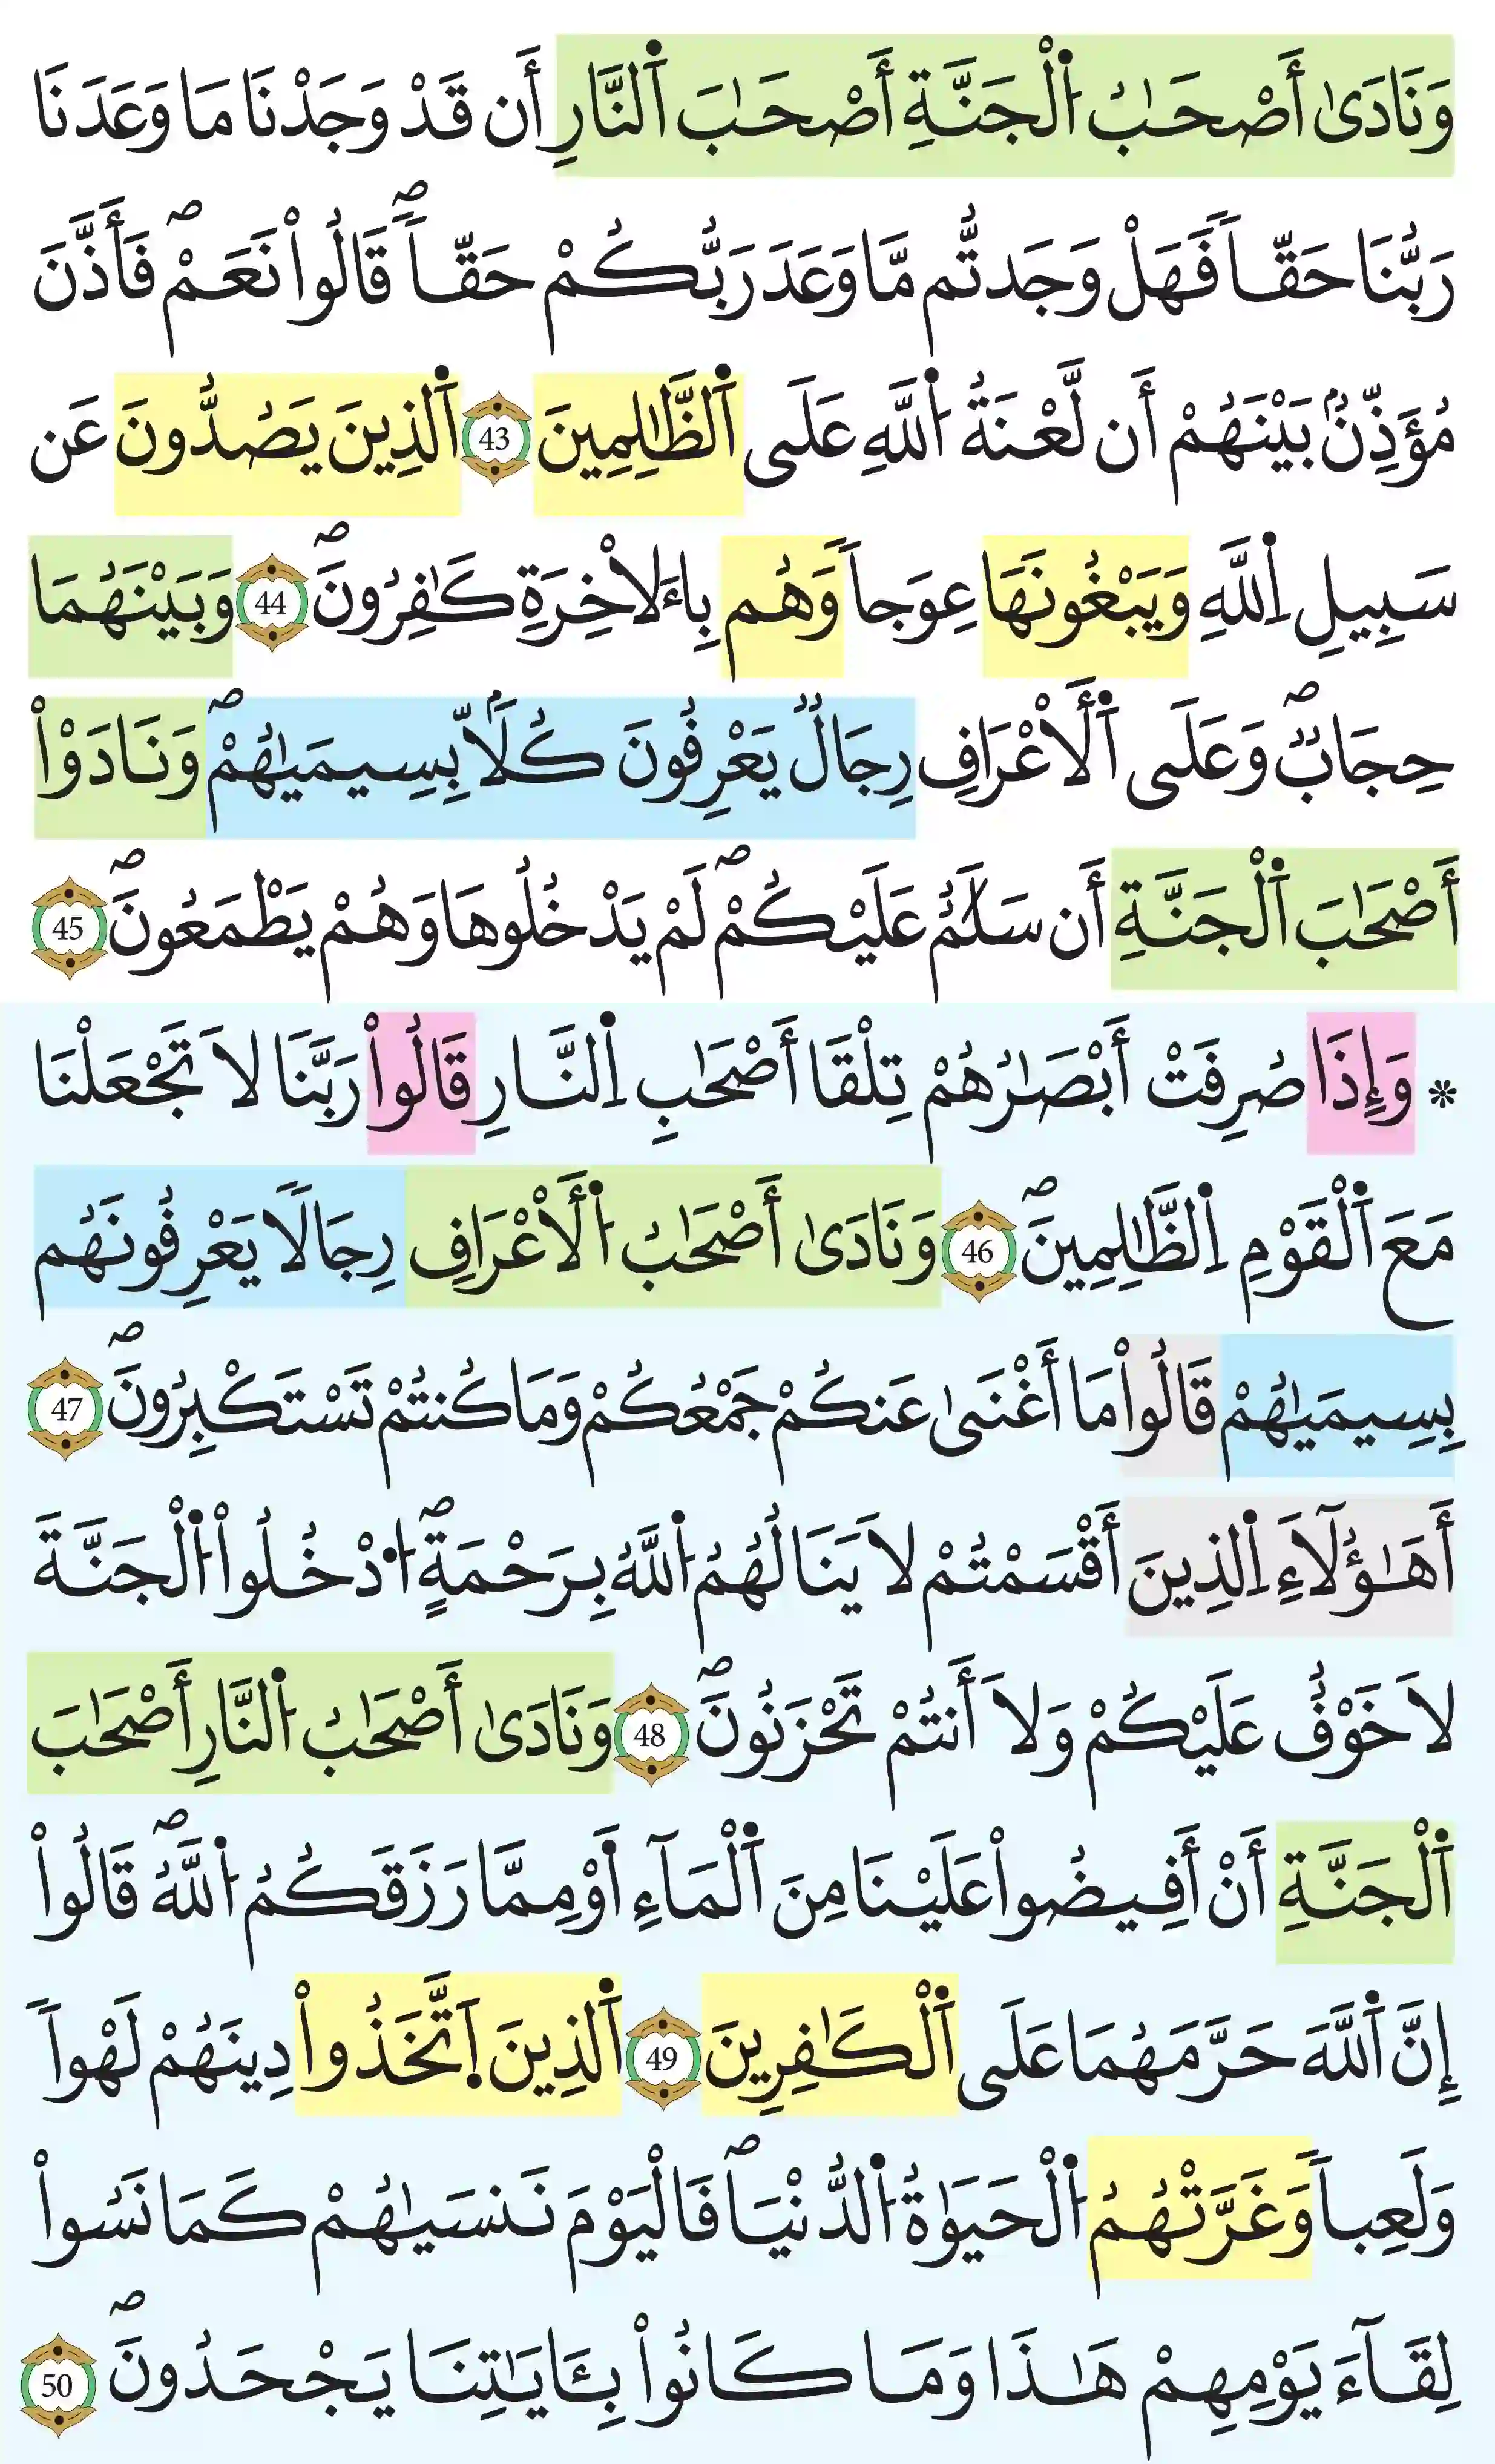 وَنَادَىٰ أَصْحَٰبُ اُ۬لْجَنَّةِ أَصْحَٰبَ اَ۬لنَّارِ أَن قَدْ وَجَدْنَا مَا وَعَدَنَا
رَبُّنَا حَقّاٗ فَهَلْ وَجَدتُّم مَّا وَعَدَ رَبُّكُمْ حَقّاٗۖ قَالُواْ نَعَمْۖ فَأَذَّنَ
مُؤَذِّنُۢ بَيْنَهُمْ أَن لَّعْنَةُ اُ۬للَّهِ عَلَى اَ۬لظَّٰلِمِينَ 43 اَ۬لذِينَ يَصُدُّونَ عَن
سَبِيلِ اِ۬للَّهِ وَيَبْغُونَهَا عِوَجاٗ وَهُم بِالَاخِرَةِ كَٰفِرُونَۖ 44 وَبَيْنَهُمَا
حِجَابٞۖ وَعَلَى اَ۬لَاعْرَافِ رِجَالٞ يَعْرِفُونَ كُلّاَۢ بِسِيمَيٰهُمْۖ وَنَادَوْاْ
أَصْحَٰبَ اَ۬لْجَنَّةِ أَن سَلَٰمٌ عَلَيْكُمْۖ لَمْ يَدْخُلُوهَا وَهُمْ يَطْمَعُونَۖ 45
* وَإِذَا صُرِفَتْ أَبْصَٰرُهُمْ تِلْقَا أَصْحَٰبِ اِ۬لنَّارِ قَالُواْ رَبَّنَا لَا تَجْعَلْنَا
مَعَ اَ۬لْقَوْمِ اِ۬لظَّٰلِمِينَۖ 46 وَنَادَىٰ أَصْحَٰبُ اُ۬لَاعْرَافِ رِجَالٗا يَعْرِفُونَهُم
بِسِيمَيٰهُمْ قَالُواْ مَا أَغْنَىٰ عَنكُمْ جَمْعُكُمْ وَمَا كُنتُمْ تَسْتَكْبِرُونَۖ 47
أَهَٰؤُلَآءِ اِ۬لذِينَ أَقْسَمْتُمْ لَا يَنَالُهُمُ اُ۬للَّهُ بِرَحْمَةٍۖ اُ۟دْخُلُواْ اُ۬لْجَنَّةَ
لَا خَوْفٌ عَلَيْكُمْ وَلَا أَنتُمْ تَحْزَنُونَۖ 48 وَنَادَىٰ أَصْحَٰبُ اُ۬لنَّارِ أَصْحَٰبَ
اَ۬لْجَنَّةِ أَنْ أَفِيضُواْ عَلَيْنَا مِنَ اَ۬لْمَآءِ اَ۬وْ مِمَّا رَزَقَكُمُ اُ۬للَّهُۖ قَالُواْ
إِنَّ اَ۬للَّهَ حَرَّمَهُمَا عَلَى اَ۬لْكَٰفِرِينَ 49 اَ۬لذِينَ اَ۪تَّخَذُواْ دِينَهُمْ لَهْواٗ
وَلَعِباٗ وَغَرَّتْهُمُ اُ۬لْحَيَوٰةُ اُ۬لدُّنْيَاۖ فَالْيَوْمَ نَنسَيٰهُمْ كَمَا نَسُواْ
لِقَآءَ يَوْمِهِمْ هَٰذَا وَمَا كَانُواْ بِـَٔايَٰتِنَا يَجْحَدُونَۖ 50